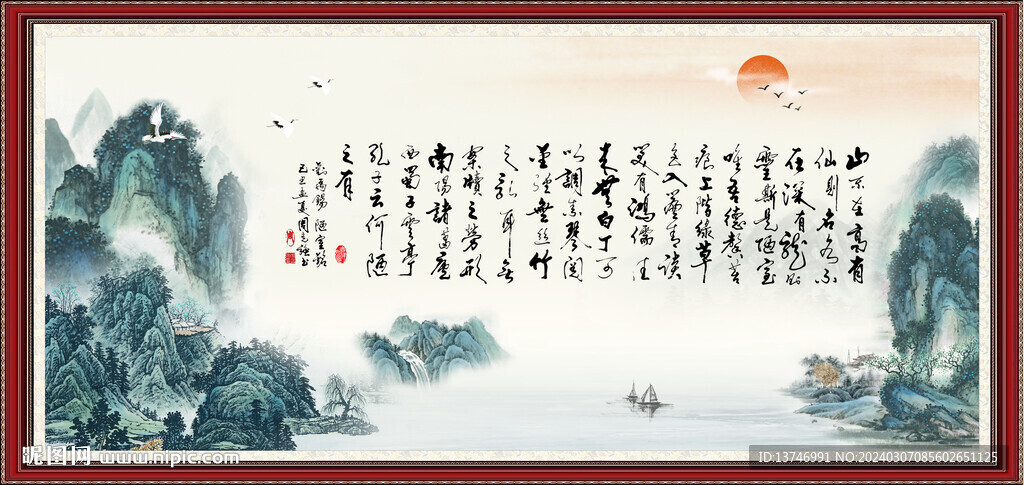 山不在高有
仙則名水不
在深有龍則
靈斯是陋室
唯吾德馨苔
痕上階綠草
色入簾青談
笑有鴻儒往
來無白丁可
以調素琴閱
金經無絲竹
之亂耳無
案牘之勞形
南陽諸葛廬
西蜀子雲亭
孔子云何陋
之有
劉禹錫 陋室銘
孟夏周書
昵图网 www.nipic.com
ID:13746991 NO:20240307085602651125